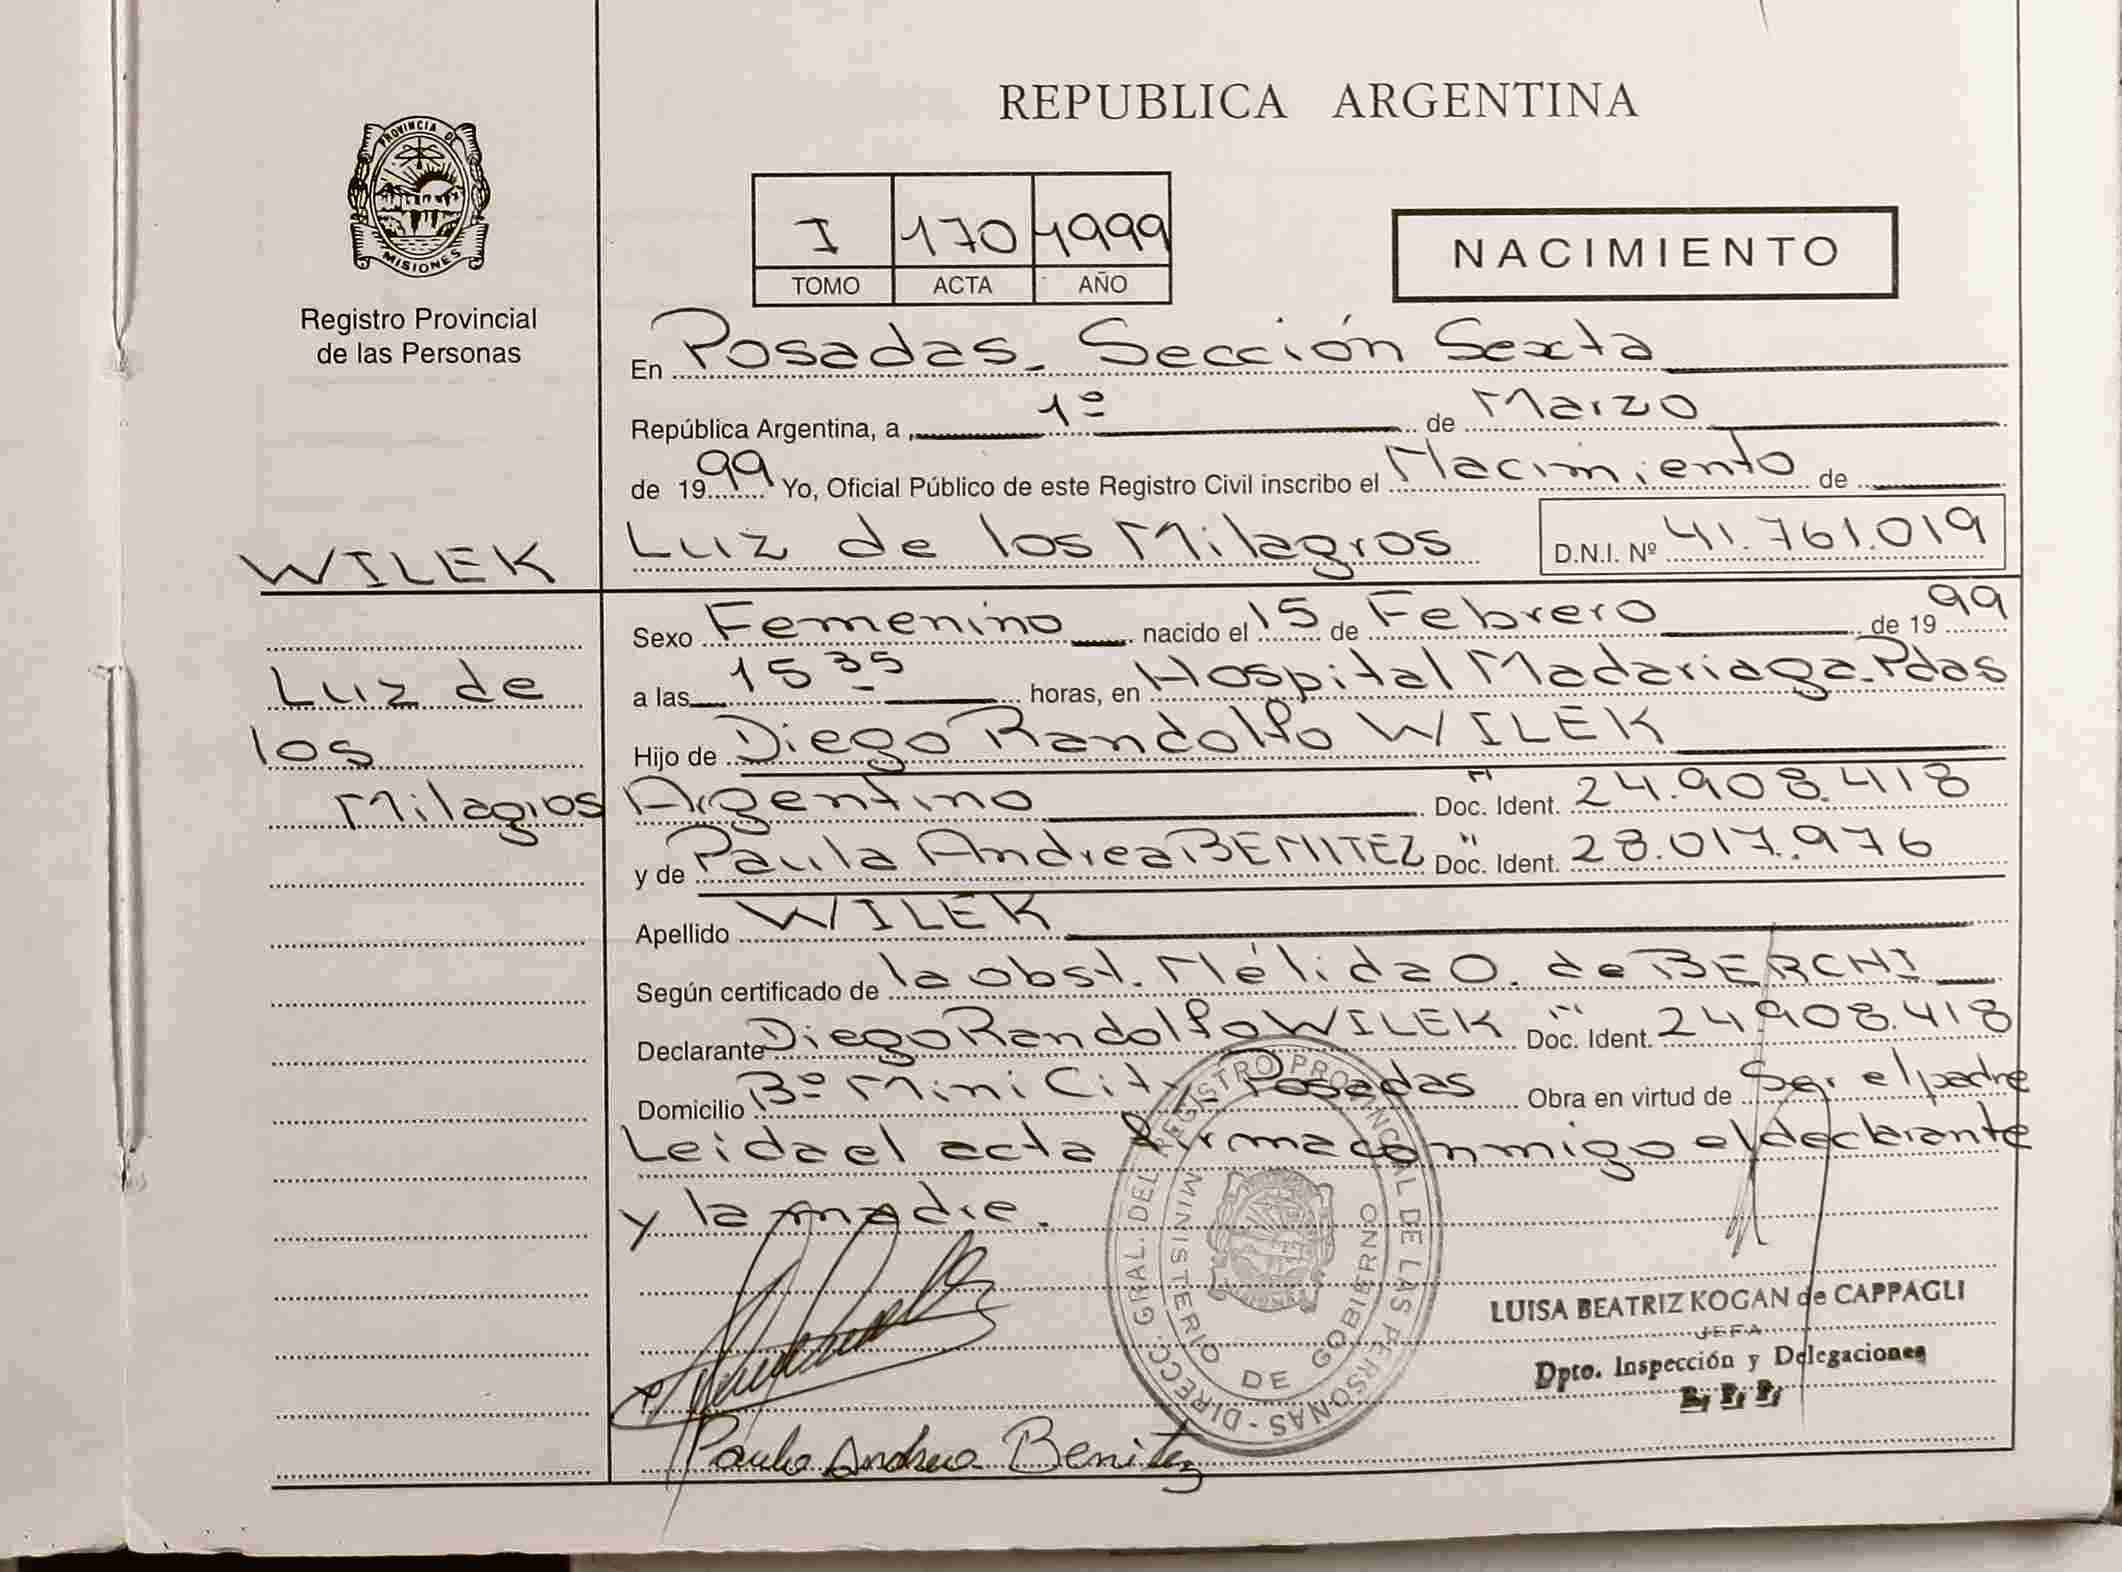 REPUBLICA ARGENTINA
PROVINCIA DE
MISIONES
Registro Provincial
de las Personas
I 170 1999
TOMO ACTA AÑO
NACIMIENTO
En Posadas - Sección Sexta
República Argentina, a 1º de Marzo
de 1999 Yo, Oficial Público de este Registro Civil inscribo el Nacimiento de
WILEK
Luz de los Milagros D.N.I. Nº 41.761.019
Sexo Femenino nacido el 15 de Febrero de 1999
Luz de
los
Milagros
a las 15 35 horas, en Hospital Madariaga - Pdas
Hijo de Diego Randolfo WILEK
Argentino Doc. Ident. 24.908.418
y de Paula Andrea BENITEZ Doc. Ident. 28.017.976
Apellido WILEK
Según certificado de la obst. Nélida O. de BERCHI
Declarante Diego Randolfo WILEK Doc. Ident. 24.908.418
Domicilio Bº Mini City - Posadas Obra en virtud de Ser el padre
Leida el acta firma conmigo el declarante
y la madre.
DIRECC. GRAL. DEL REGISTRO PROVINCIAL DE LAS PERSONAS
MINISTERIO DE GOBIERNO
LUISA BEATRIZ KOGAN de CAPPAGLI
JEFA
Dpto. Inspección y Delegaciones
Paula Andrea Benitez